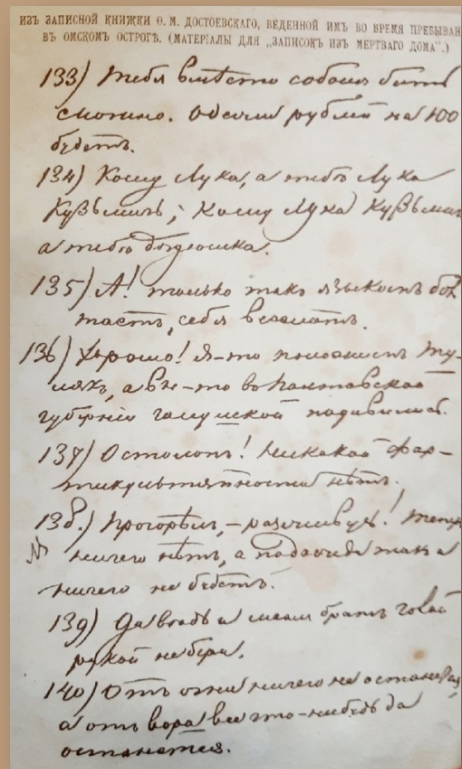 ИЗЪ ЗАПИСНОЙ КНИЖКИ Ѳ. М. ДОСТОЕВСКАГО, ВЕДЕННОЙ ИМЪ ВО ВРЕМЯ ПРЕБЫВАН
ВЪ ОМСКОМЪ ОСТРОГѢ. (МАТЕРІАЛЫ ДЛЯ „ЗАПИСОКЪ ИЗЪ МЕРТВАГО ДОМА".)
133) Тебя вмѣсто бить
рублей на 100
будетъ.
134) Кому Лука, а тебѣ Лука
Кузьмичъ; Кому Лука Кузьмич
а тебѣ дядюшка.
135) А! только такъ языкомъ бол
таетъ, себя веселитъ.
136) Хорошо! Я-то положимъ ту-
лякъ, а вы-то во Полтавской
губерніи галушкой подавились.
137) Остолопъ! Никакой фар-
тикультяпности нѣтъ.
138.) Прогорѣли, –
№ ничего нѣтъ, а подожди такъ и
ничего не будетъ.
139) Да вѣдь и меня братъ голой
рукой не бери.
140) Отъ огня ничего не останется,
а отъ вора все что-нибудь да
останется.